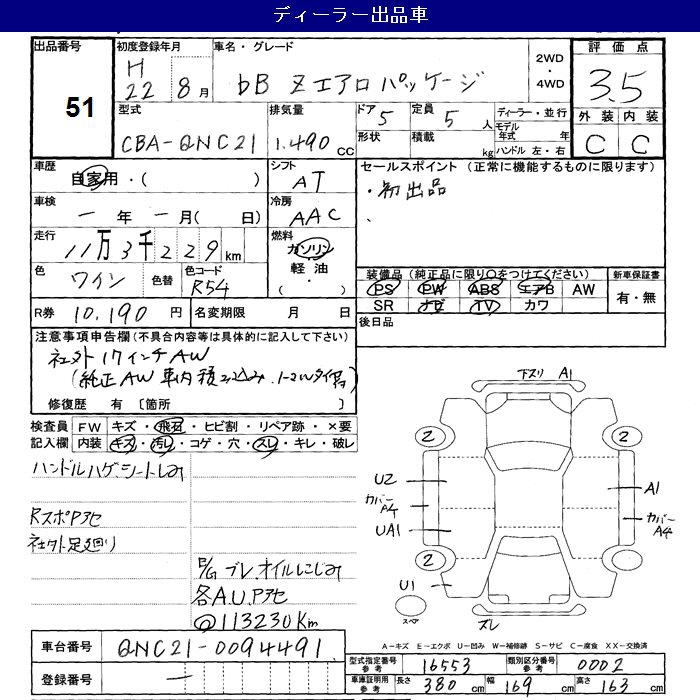 ディーラー出品車
出品番号 51
初度登録年月 H22 8月
車名・グレード bB Zエアロパッケージ
2WD・4WD
評価点 3.5
型式 CBA-QNC21
排気量 1.490 CC
ドア 5
形状
定員 5人
積載 kg
ディーラー・並行
モデル年式 年
ハンドル 左・右
外装 内装
C C
車歴 自家用・( )
シフト AT
セールスポイント (正常に機能するものに限ります)
・初出品
車検 ー年ー月( 日)
冷房 AAC
走行 11万3千229km
燃料 ガソリン・軽油 ( ・ )
色 ワイン 色替
色コード R54
装備品 (純正品に限り○をつけてください)
新車保証書
PS PW ABS エアB AW
SR ナビ TV カワ
有・無
R券 10.190円
名変期限 月 日
後日品
注意事項申告欄 (不具合内容等は具体的に記入して下さい)
社外17インチAW
(純正AW車内積み込み.
修復歴 有 〔箇所 〕
検査員記入欄
FW キズ・飛石・ヒビ割・リペア跡・×要
内装 キズ・汚レ・コゲ・穴・スレ・キレ・破レ
ハンドルハゲ、シートしみ
RスポPアセ
社外足廻り
E/G ブレ、オイルにじみ
各A.U.Pアセ
@113230Km
下スリ A1
2 2
U2
カバーA4
UA1
A1
カバーA4
2 2
U1
スペア
ズレ
車台番号 QNC21-0094491
登録番号 ー
A－キズ E－エクボ U－凹み W－補修跡 S－サビ C－腐食 XX－交換済
型式指定番号 参考 16553
類別区分番号 参考 0002
車庫証明用 参考 長さ 380cm 幅 169cm 高さ 163cm